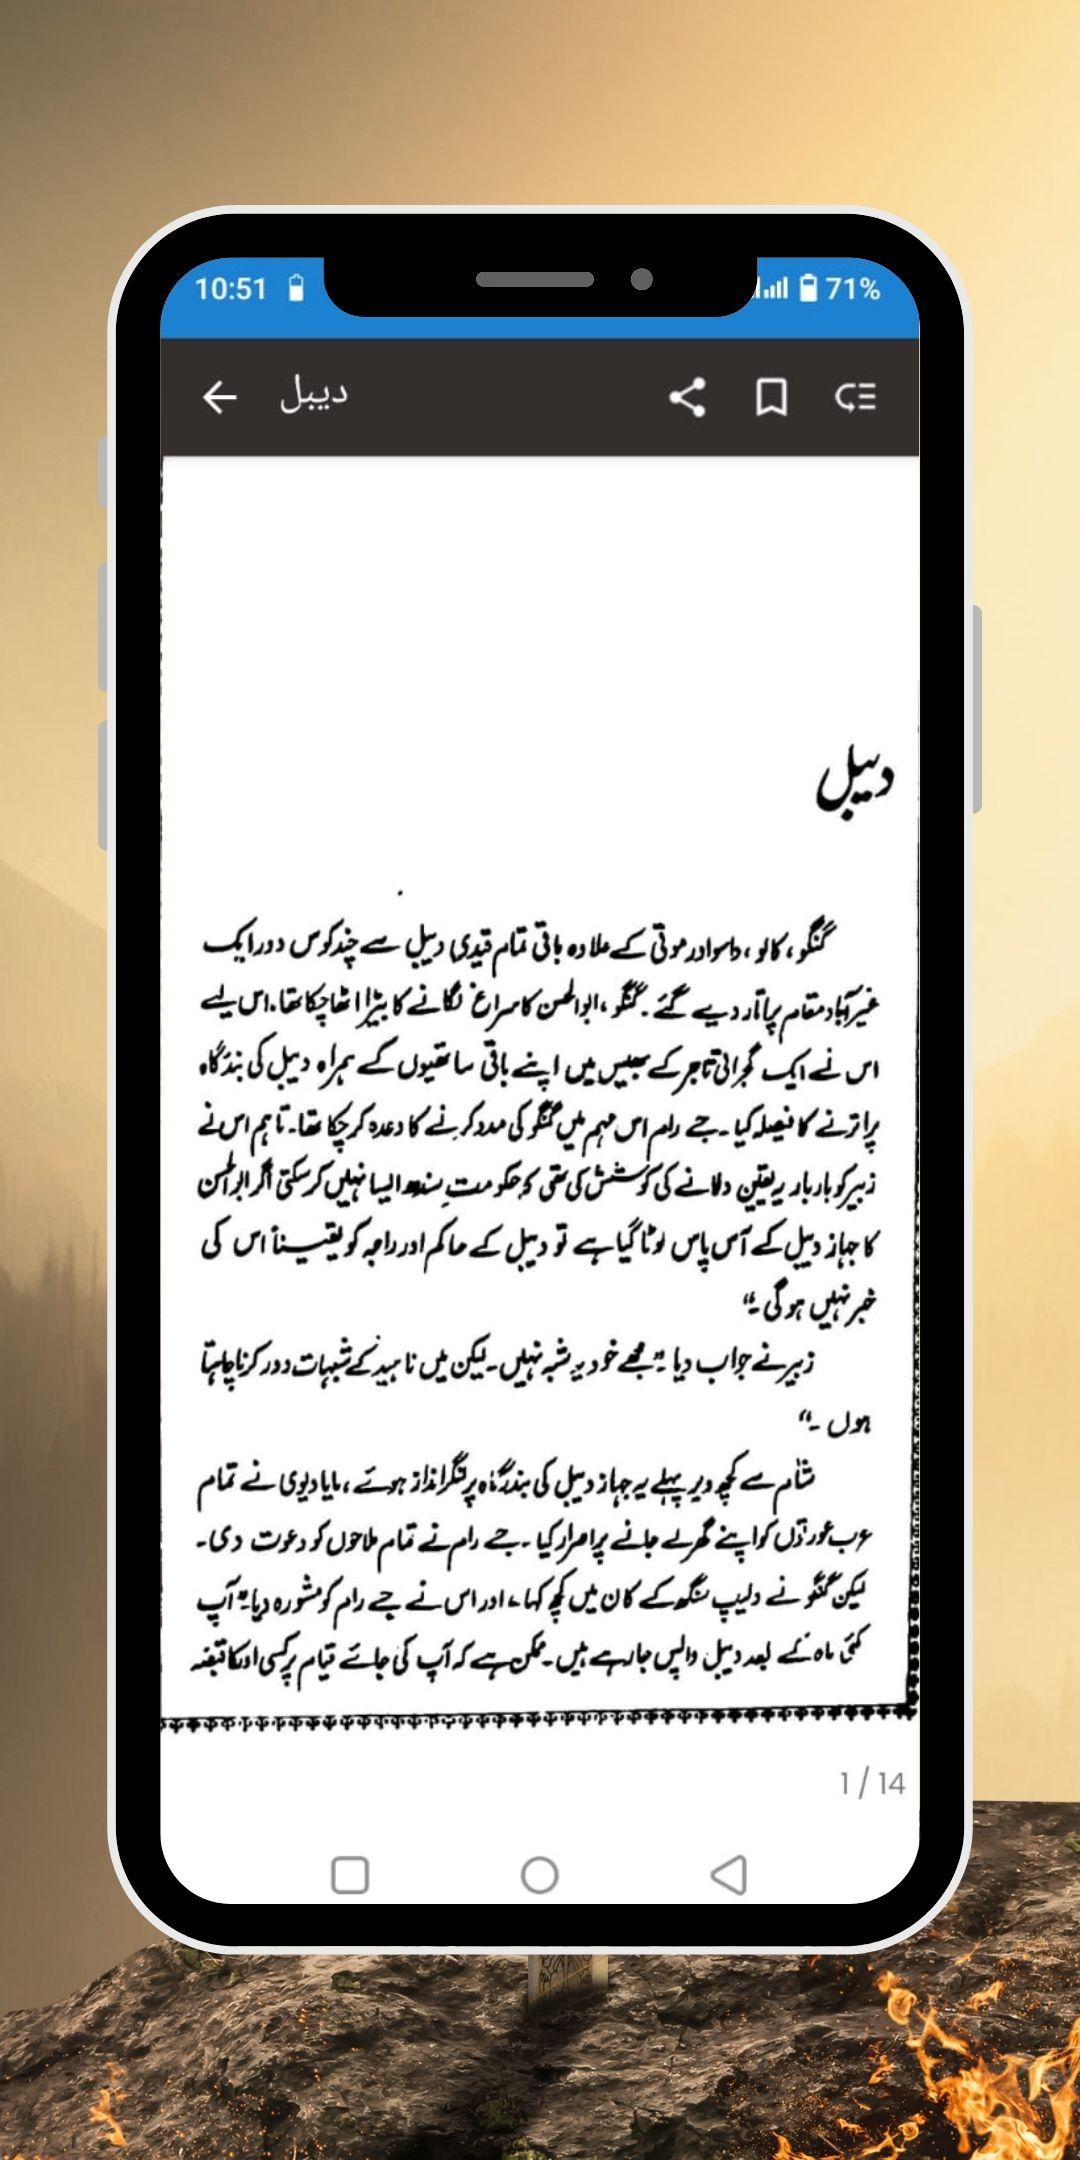 10:51
71%
دیبل
دیبل
گنگو، کالو، داسو اور موتی کے علاوہ باقی تمام قیدی دیبل سے چند کوس دور ایک
غیر آباد مقام پر اتار دیے گئے۔ گنگو، ابوالحسن کا سراغ لگانے کا بیڑا اٹھا چکا تھا۔ اس لیے
اس نے ایک گجراتی تاجر کے بھیس میں اپنے باقی ساتھیوں کے ہمراہ دیبل کی بندرگاہ
پر اترنے کا فیصلہ کیا۔ جے رام اس مہم میں گنگو کی مدد کرنے کا وعدہ کر چکا تھا۔ تاہم اس نے
زبیر کو بار بار یہ یقین دلانے کی کوشش کی تھی کہ حکومتِ سندھ ایسا نہیں کر سکتی اگر ابوالحسن
کا جہاز دیبل کے آس پاس لوٹا گیا ہے تو دیبل کے حاکم اور راجہ کو یقیناً اس کی
خبر نہیں ہو گی۔“
زبیر نے جواب دیا۔ ”مجھے خود یہ شبہ نہیں۔ لیکن میں ناہید کے شبہات دور کرنا چاہتا
ہوں۔“
شام سے کچھ دیر پہلے یہ جہاز دیبل کی بندرگاہ پر لنگر انداز ہوئے، مایا دیوی نے تمام
عرب عورتوں کو اپنے گھر لے جانے پر اصرار کیا۔ جے رام نے تمام ملاحوں کو دعوت دی۔
لیکن گنگو نے دلیپ سنگھ کے کان میں کچھ کہا، اور اس نے جے رام کو مشورہ دیا۔ ”آپ
کئی ماہ کے بعد دیبل واپس جا رہے ہیں۔ ممکن ہے کہ آپ کی جائے قیام پر کسی اور کا قبضہ
1 / 14